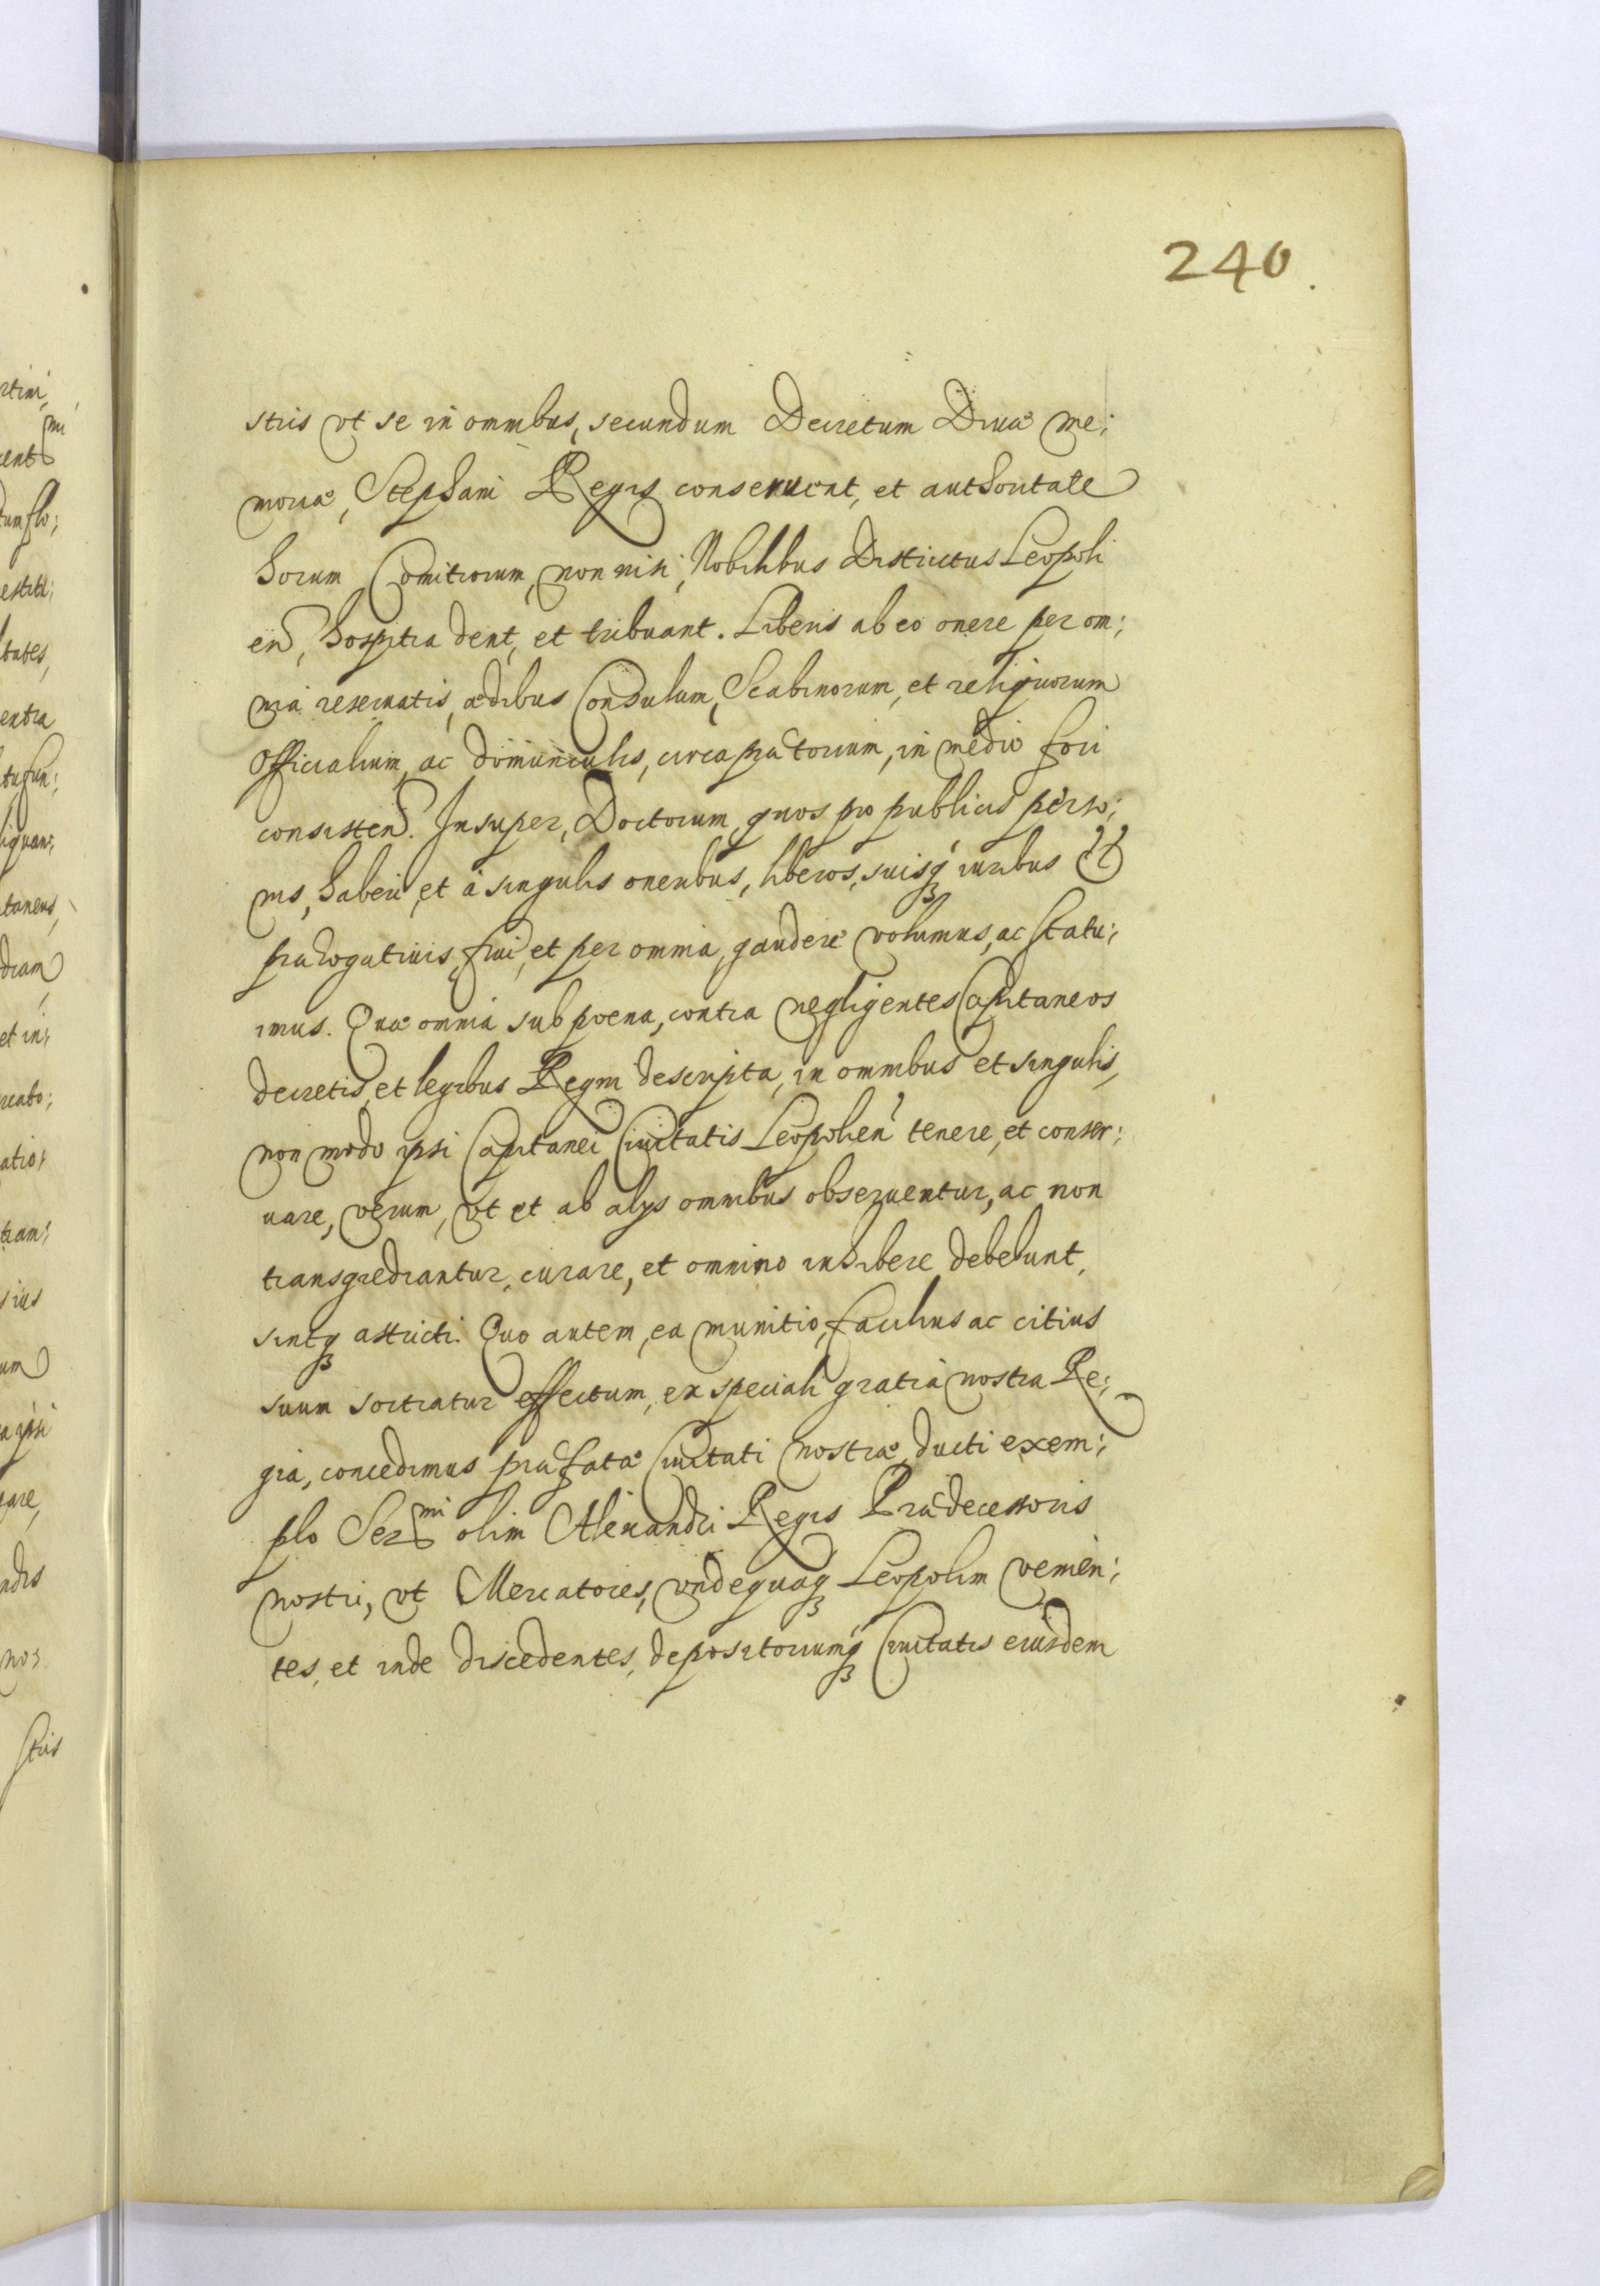 240
stris vt se in omnibus, secundum Decretum Diuæ me;
moriæ, Stephani Regis conseruent, et authoritate
horum Comitiorum, non nisi, Nobilibus Districtus Leopoli
en, hospitia dent, et tribuant. Liberis ab eo onere per om;
nia reseruatis, ædibus Consulum, Scabinorum, et reliquorum
Officialium, ac domunculis, circa prætorium, in medio fori
consisten. Insuper, Doctorum, quos pro publicis perso;
nis, haberi, et à singulis oneribus, liberos, suisq₃ iuribus et
prærogatiuis, frui, et per omnia, gaudere volumus, ac statu;
imus. Quæ omnia sub poena, contra negligentes Capitaneos
decretis, et legibus Regni descripta, in omnibus et singulis,
non modo ipsi Capitanei Ciuitatis Leopolien tenere, et conser;
uare, verum, vt et ab alys omnibus obseruentur, ac non
transgrediantur, curare, et omnino inhibere debebunt,
sintq₃ astricti. Quo autem, ea munitio, facilius ac citius
suum sortiatur effectum, ex speciali gratia nostra Re;
gia, concedimus præfatæ Ciuitati nostræ, ducti exem;
plo Ser^mi olim Alexandri Regis Prædecessoris
nostri, vt Mercatores, vndequaq₃ Leopolim venien;
tes, et inde discedentes, depositoriumq₃ Ciuitatis eiusdem